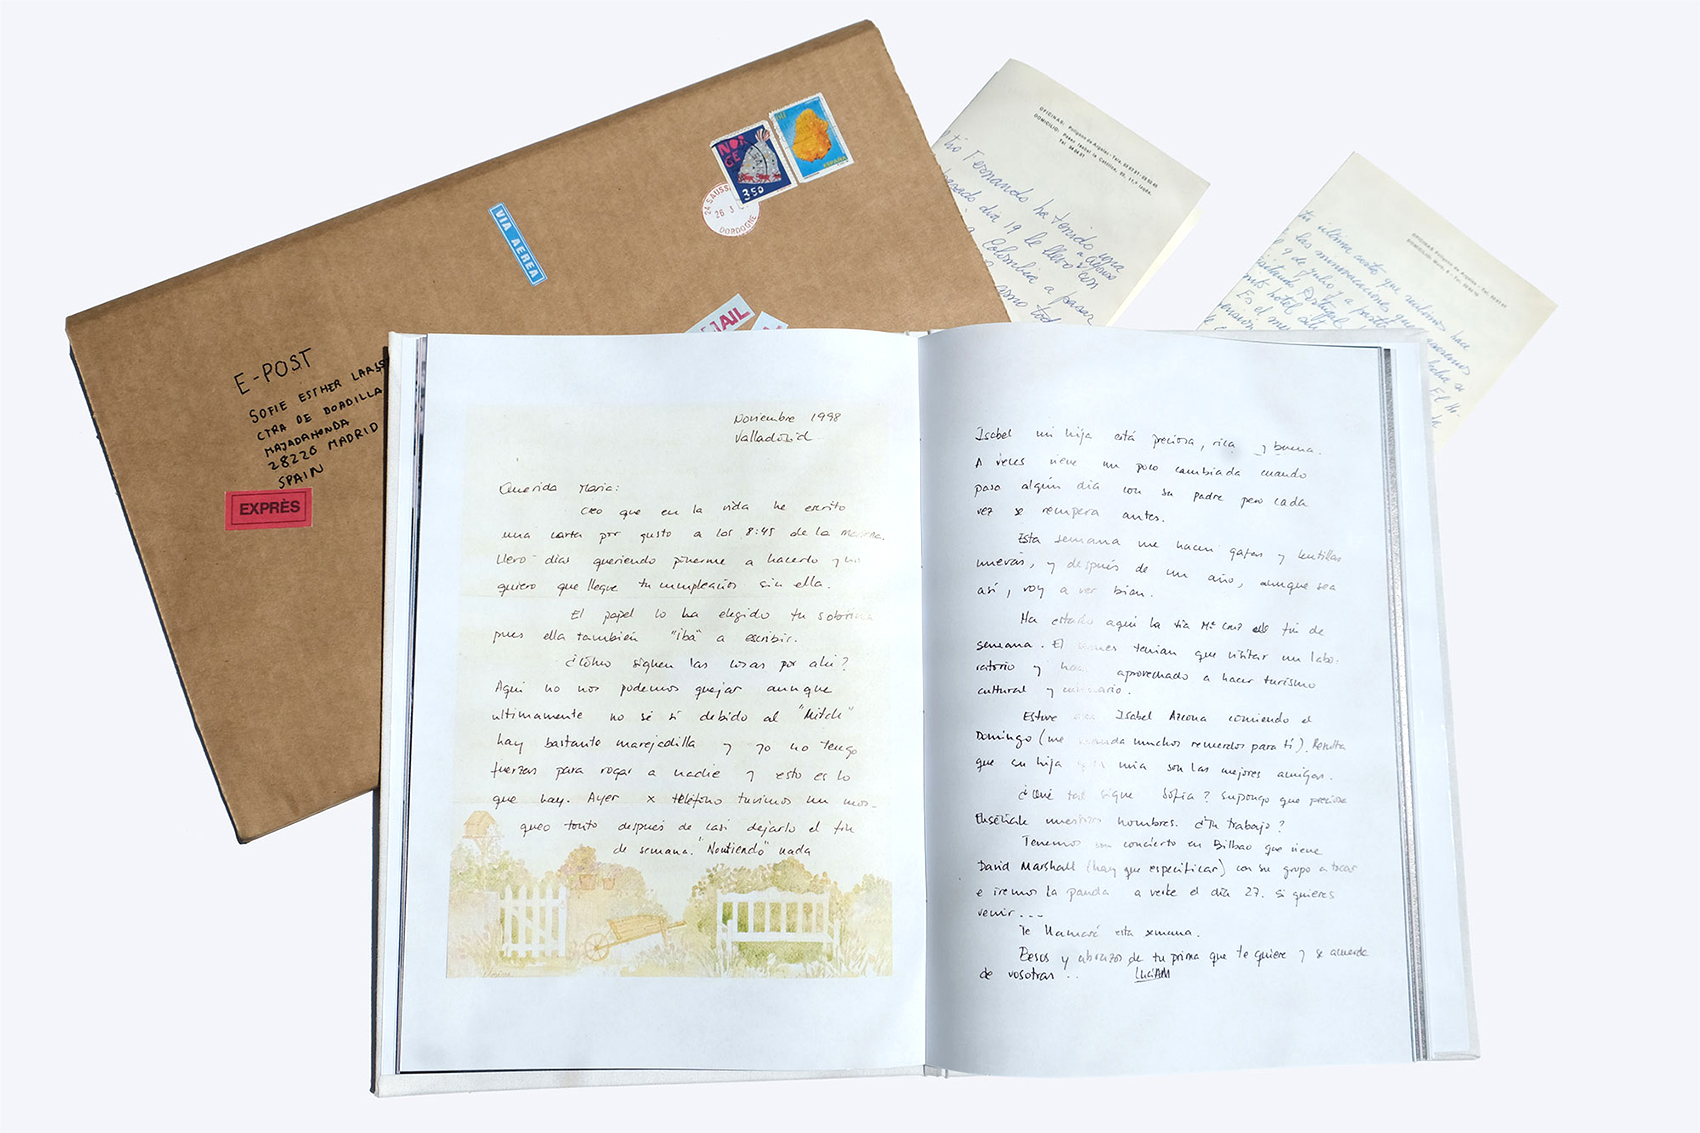 NORGE
350
ESPAÑA
24 SAUSS
26 3
DORDOGNE
VIA AEREA
MAIL
E-POST
SOFIE ESTHER LARSE
CTRA DE BOADILLA
MAJADAHONDA
28220 MADRID
SPAIN
EXPRÈS
OFICINAS: Polígono de Argales - Tels.
DOMICILIO: Paseo Isabel la Católica,
tio Fernando ha tenido
día 19 le llevó con
Colombia a pasar
como tod
OFICINAS: Polígono de Argales - Tel.
DOMICILIO:
tu última carta que recibimos hace
las
9 de julio y a partir
Portugal
hotel
Es el
Noviembre 1998
Valladolid
Querida Maria:
Creo que en la vida he escrito
una carta por gusto a las 8:45 de la mañana.
Llevo días queriendo ponerme a hacerlo y no
quiero que llegue tu cumpleaños sin ella.
El papel lo ha elegido tu sobrina
pues ella también "iba" a escribir.
¿Cómo siguen las cosas por ahí?
Aqui no nos podemos quejar aunque
ultimamente no sé si debido al "Mitch"
hay bastante marejadilla y yo no tengo
fuerzas para rogar a nadie y esto es lo
que hay. Ayer x teléfono tuvimos un mos-
queo tonto después de casi dejarlo el fin
de semana. "Nontiendo" nada
Isabel mi hija está preciosa, rica y buena.
A veces viene un poco cambiada cuando
pasa algún día con su padre pero cada
vez se recupera antes.
Esta semana me hacen gafas y lentillas
nuevas, y después de un año, aunque sea
así, voy a ver bien.
Ha estado aquí la tia Mª Cruz el fin de
semana. El viernes tenian que visitar un labo-
ratorio y han aprovechado a hacer turismo
cultural y culinario.
Estuve con Isabel Azcona comiendo el
Domingo (me manda muchos recuerdos para tí). Resulta
que su hija y la mia son las mejores amigas.
¿Qué tal sigue Sofia? Supongo que preciosa
Enséñale nuestros nombres. ¿Tu trabajo?
Tenemos un concierto en Bilbao que viene
David Marshall (hay que especificar) con su grupo a tocar
e iremos la panda a verle el día 27. Si quieres
venir...
Te llamaré esta semana.
Besos y abrazos de tu prima que te quiere y se acuerda
de vosotras..